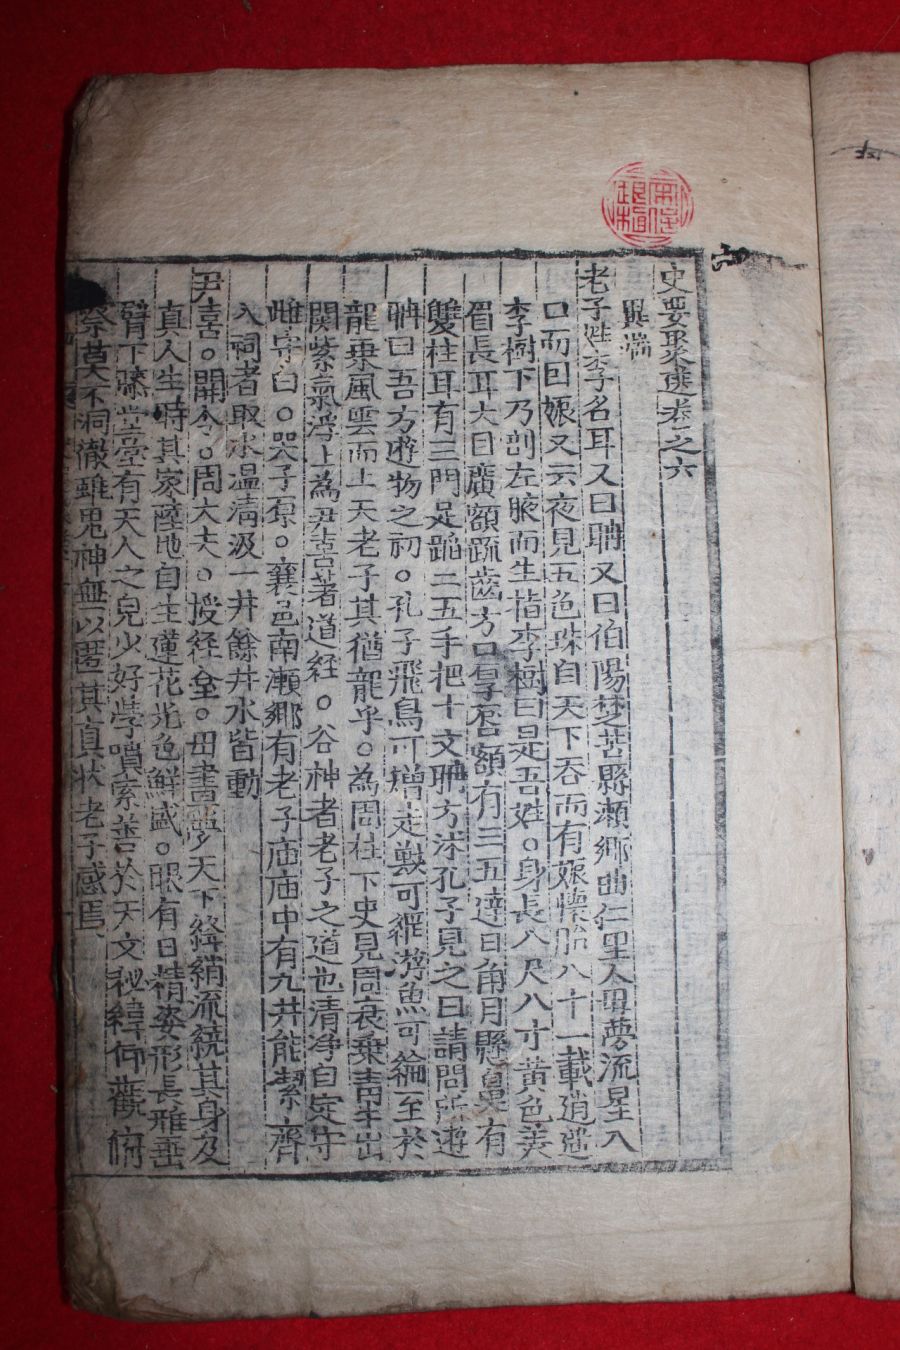 史要聚選卷之六
異端
老子姓李名耳又曰聃又曰伯陽楚苦縣瀬鄉曲仁里人母夢流星入
口而曰娠又云夜見五色珠自天下吞而有娠懷胎八十一載逍遙
李樹下乃剖左腋而生指李樹曰是吾姓○身長八尺八寸黃色美
眉長耳大目廣額疏齒方口厚唇額有三五達日角月懸鼻有
雙柱耳有三門足蹈二五手把十文聃方沐孔子見之曰請問所遊
聃曰吾方遊物之初○孔子飛鳥可矰走獸可網游魚可綸至於
龍乘風雲而上天老子其猶龍乎○為周柱下史見周衰乗靑牛出
関紫氣浮上為尹喜著道経○谷神者老子之道也清净自定守
雌守白○哭子原○襄邑南瀬鄉有老子庙庙中有九井能㓗齊
入祠者取水温清汲一井餘井水皆動
尹喜○開令○周大夫○授経坴○母晝夢天下絳綃流繞其身及
真人生時其家陸地自生蓮花光色鮮盛○眼有日精姿形長雅垂
臂下膝堂堂有天人之皃少好學噴索善於天文秘緯仰觀俯
察莫不洞徹雖鬼神無以匿其真状老子感焉